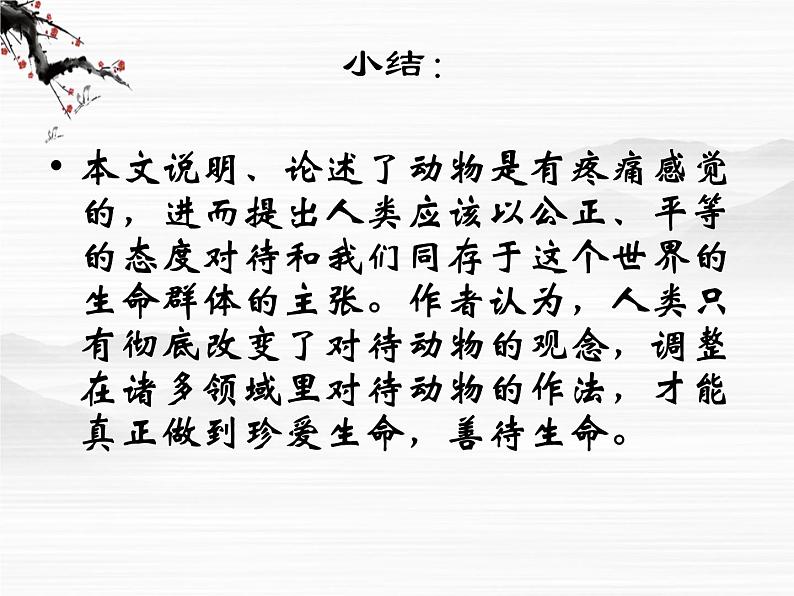 小结：
• 本文说明、论述了动物是有疼痛感觉
的，进而提出人类应该以公正、平等
的态度对待和我们同存于这个世界的
生命群体的主张。作者认为，人类只
有彻底改变了对待动物的观念，调整
在诸多领域里对待动物的作法，才能
真正做到珍爱生命，善待生命。